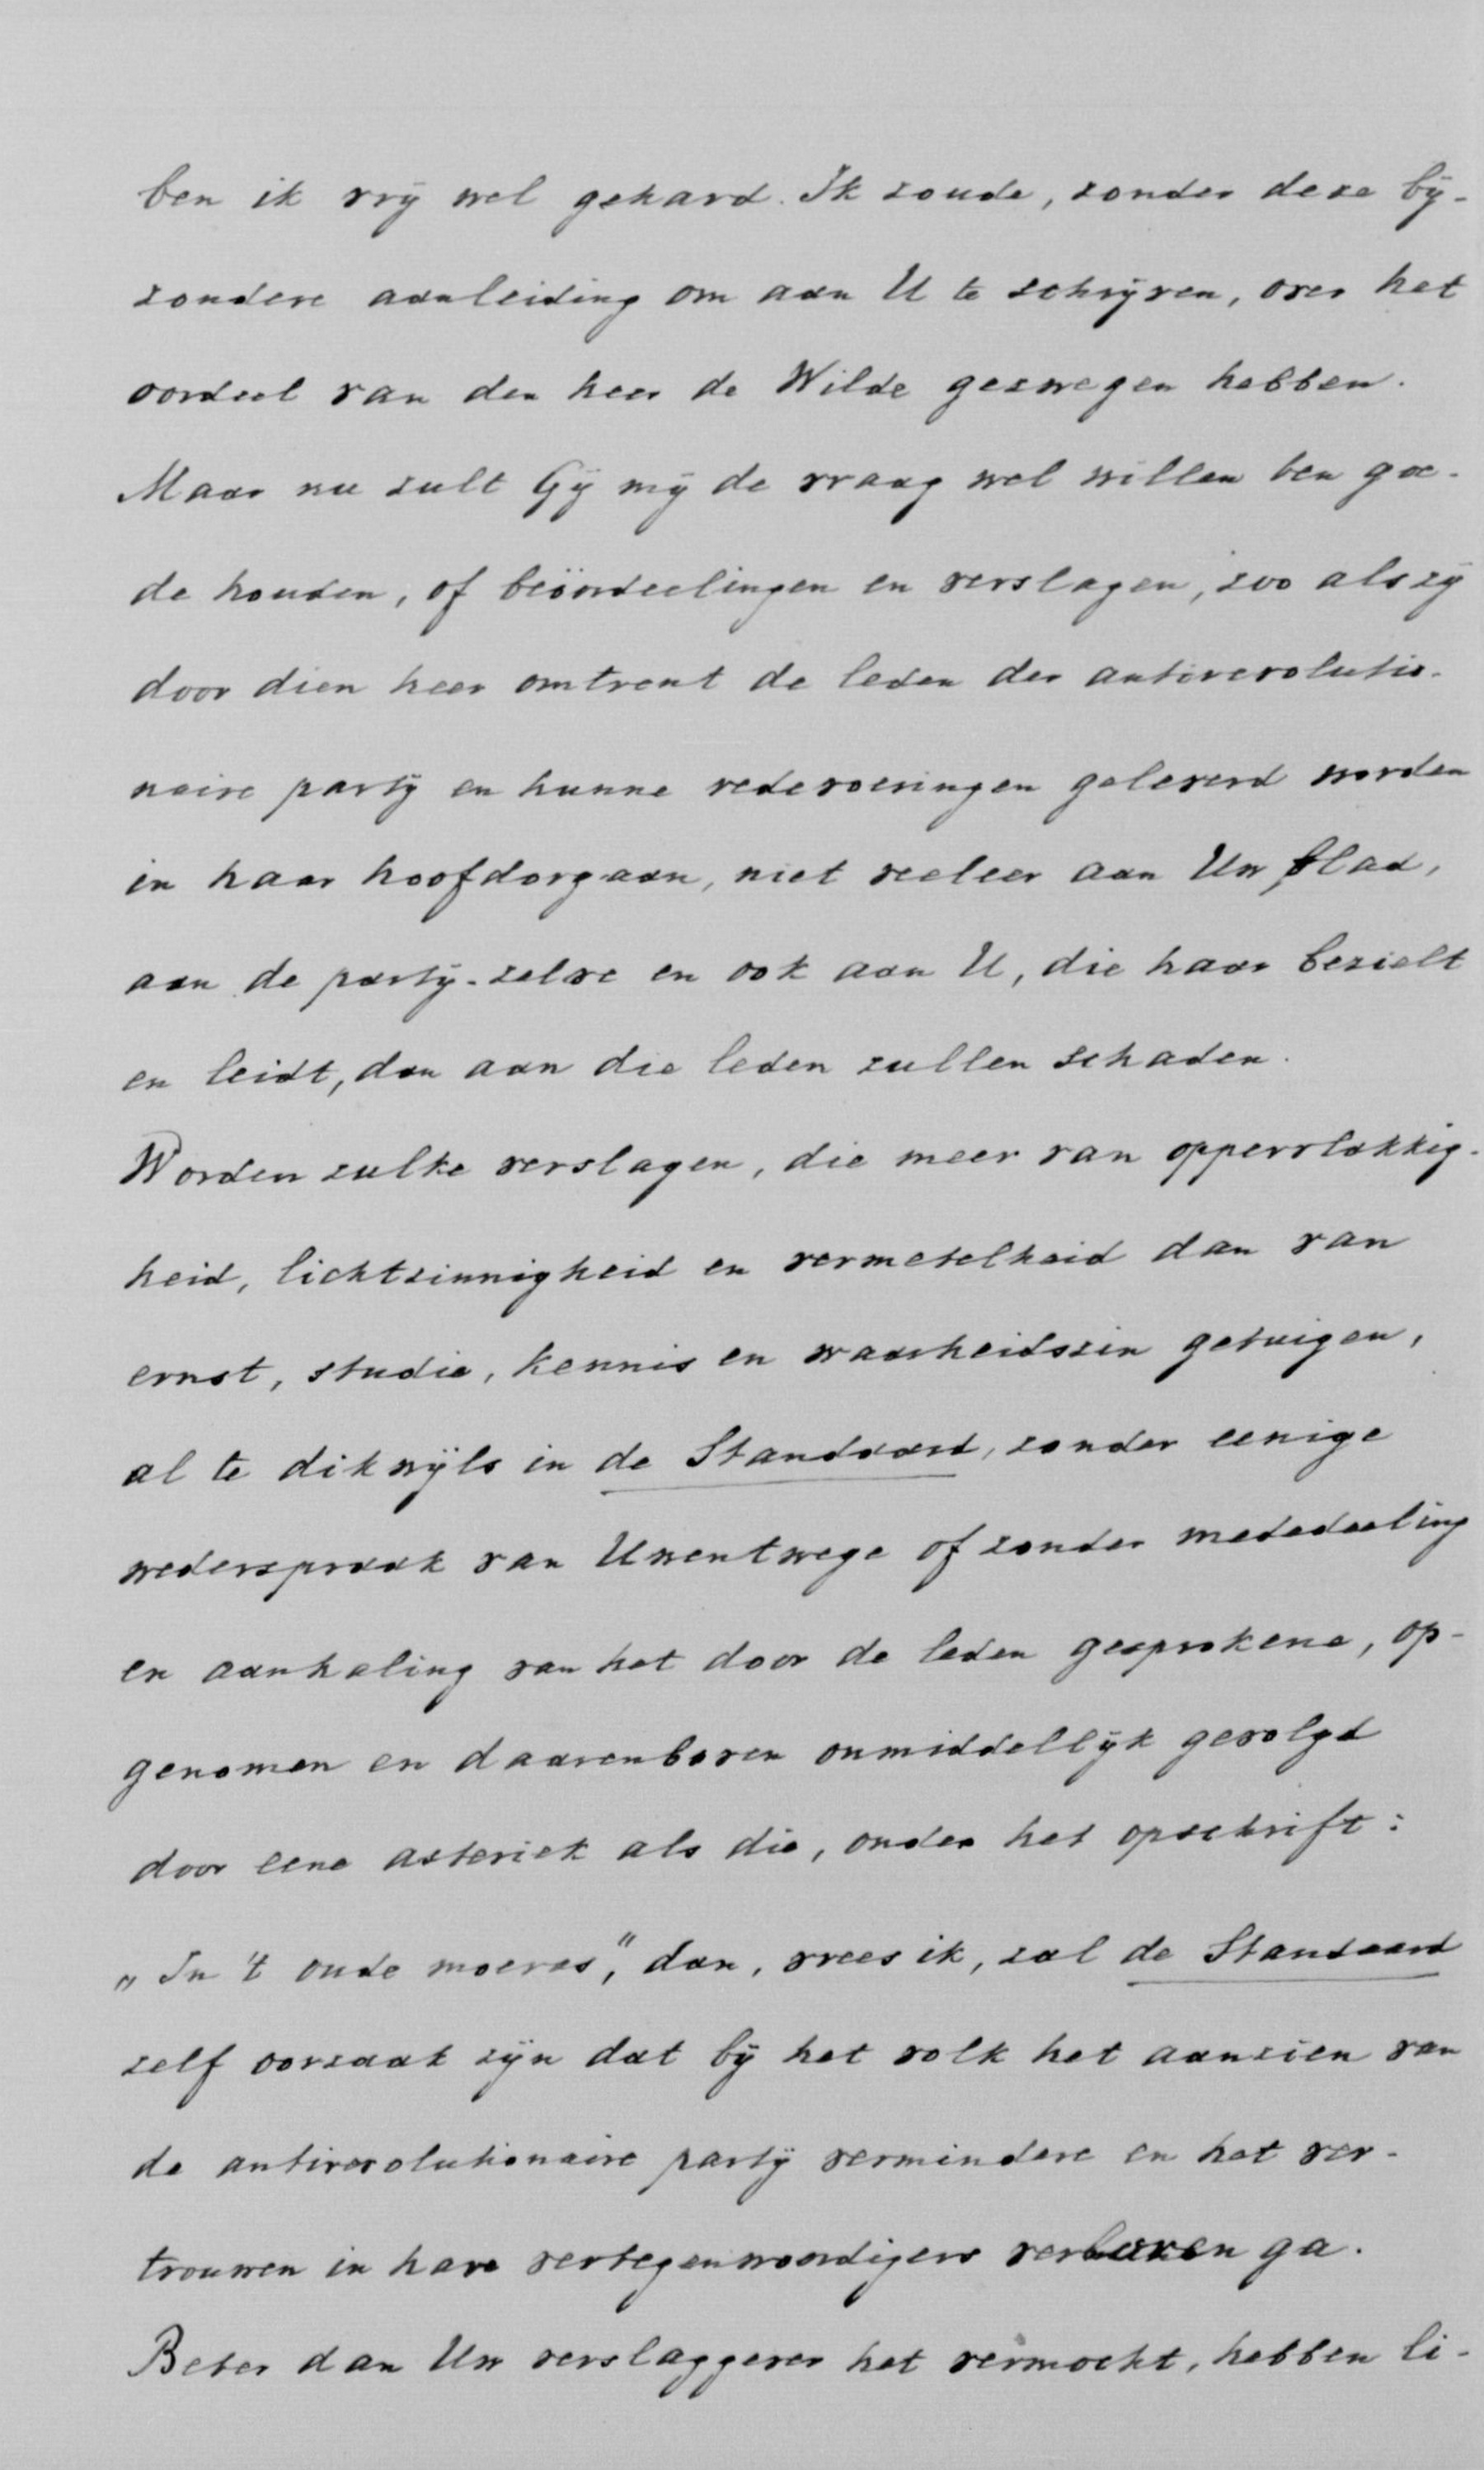 ben ik vrij wel gehard. Ik zoude, zonder deze bij-
zondere aanleiding om aan U te schrijven, over het
oordeel van den heer de Wilde gezwegen hebben.
Maar nu zult Gij mij de vraag wel willen ten goe-
de houden, of beöordeelingen en verslagen, zoo als zij
door dien heer omtrent de leden der antirevolutio-
naire partij en hunne redevoeringen geleverd worden
in haar hoofdorgaan, niet veeleer aan Uw blad,
aan de partij-zelve en ook aan U, die haar bezielt
en leidt, dan aan die leden zullen schaden.
Worden zulke verslagen, die meer van oppervlakkig-
heid, lichtzinnigheid en vermetelheid dan van
ernst, studie, kennis en waarheidszin getuigen,
al te dikwijls in de Standaard, zonder eenige
wederspraak van Uwentwege of zonder mededeeling
en aanhaling van het door de leden gesprokene, op-
genomen en daarenboven onmiddellijk gevolgd
door eene asterisk als die, onder het opschrift:
„In 't oude moeras", dan, vrees ik, zal de Standaard
zelf oorzaak zijn dat bij het volk het aanzien van
de antirevolutionaire partij vermindere en het ver-
trouwen in hare vertegenwoordigers verloren ga.
Beter dan Uw verslaggever het vermocht, hebben li-